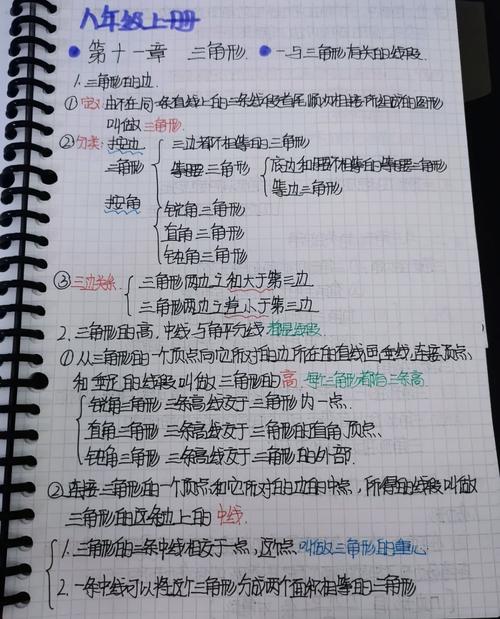 八年级上册
第十一章 三角形. 一.与三角形有关的线段.
1.三角形的边.
①定义:由不在同一条直线上的三条线段首尾顺次相接所组成的图形
叫做三角形.
②分类:按边 三边都不相等的三角形
三角形 等腰三角形 底边和腰不相等的等腰三角形
等边三角形
按角 锐角三角形
直角三角形
钝角三角形
③三边关系 三角形两边之和大于第三边
三角形两边之差小于第三边
2.三角形的高、中线与角平分线 都是线段
①从三角形的一个顶点向它所对的边所在的直线画垂线,连接顶点
和垂足的线段叫做三角形的高. 每个三角形都有三条高.
锐角三角形三条高线交于三角形内一点.
直角三角形三条高线交于三角形的直角顶点.
钝角三角形三条高线交于三角形的外部.
②连接三角形的一个顶点和它所对的边的中点,所得的线段叫做
三角形的这条边上的中线.
1.三角形的三条中线相交于一点,这个点叫做三角形的重心.
2.一条中线可以将这个三角形分成两个面积相等的三角形